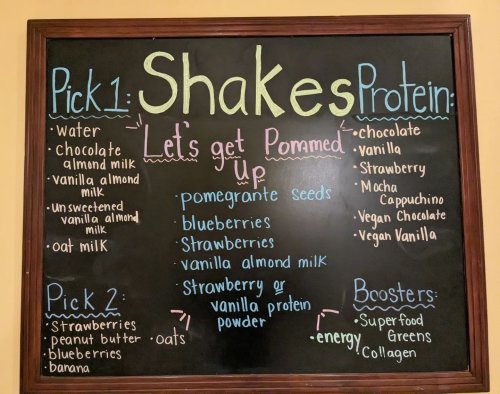 Shakes
Pick 1:
• Water
• Chocolate
almond milk
• vanilla almond
milk
• unsweetened
vanilla almond
milk
• oat milk
Let's get Pommed
Up
• pomegrante seeds
• blueberries
• Strawberries
• vanilla almond milk
• Strawberry or
vanilla protein
powder
Protein:
• chocolate
• Vanilla
• Strawberry
• Mocha
Cappuchino
• Vegan Chocolate
• Vegan Vanilla
Pick 2:
• Strawberries
• peanut butter
• blueberries
• banana
• oats
Boosters:
• Superfood
Greens
• energy
• Collagen